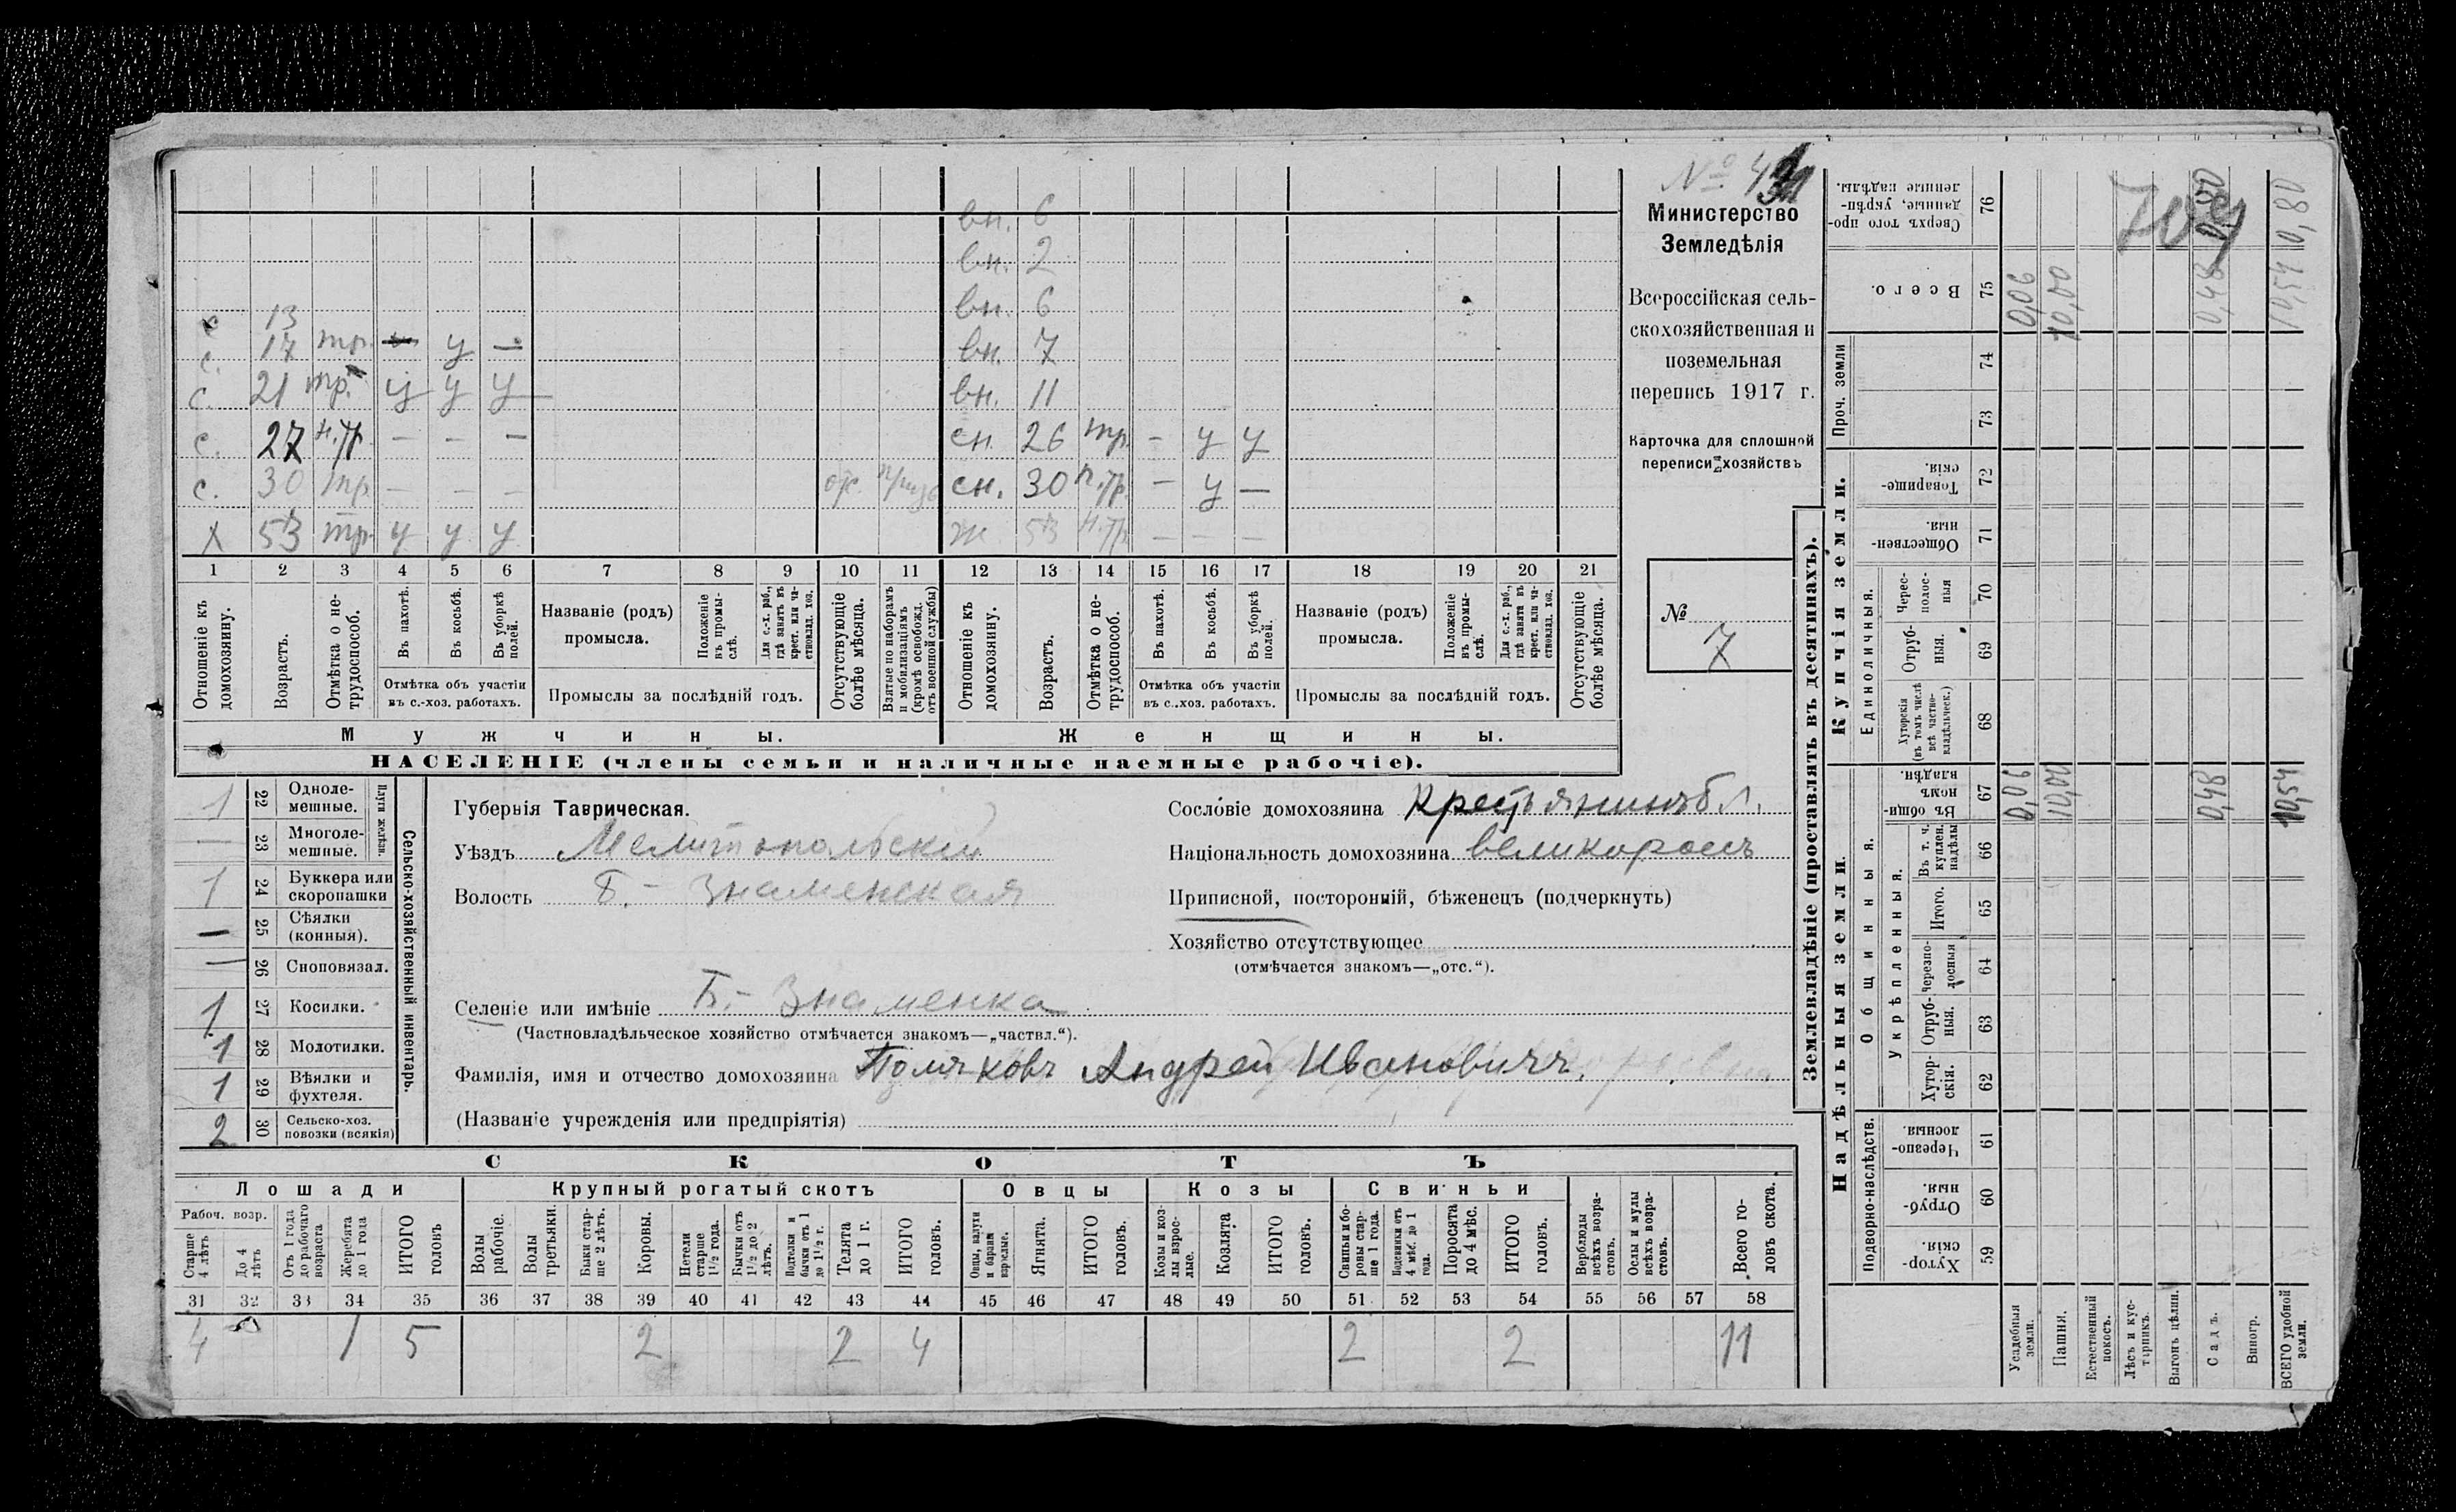 № 431
Министерство
Земледѣлія
Всероссійская сель-
скохозяйственная и
поземельная
перепись 1917 г.
Карточка для сплошной
переписи хозяйствъ
№
7
вн. 6
вн. 2
вн. 6
с. 13 вн. 7
с. 17 тр. — у —
с. 21 тр. у у у вн. 11
с. 27 н.тр. — — — сн. 26 тр. — у у
с. 30 тр. — — — от. призв сн. 30 п.тр. — у —
х 53 тр. у у у ж 53 н.тр. — — —
1 2 3 4 5 6 7 8 9 10 11 12 13 14 15 16 17 18 19 20 21
Отношеніе къ домохозяину.
Возрастъ.
Отмѣтка о не-трудоспособ.
Въ пахотѣ.
Въ косьбѣ.
Въ уборкѣ полей.
Отмѣтка объ участіи
въ с.-хоз. работахъ.
Названіе (родъ)
промысла.
Положеніе въ промы-слѣ.
Для с.-х. раб., гдѣ занятъ въ крест. или ча-стновлад. хоз.
Промыслы за послѣдній годъ.
Отсутствующіе болѣе мѣсяца.
Взятые по наборамъ и мобилизаціямъ (кромѣ освобожд. отъ военной службы)
Отношеніе къ домохозяину.
Возрастъ.
Отмѣтка о не-трудоспособ.
Въ пахотѣ.
Въ косьбѣ.
Въ уборкѣ полей.
Отмѣтка объ участіи
въ с..хоз. работахъ.
Названіе (родъ)
промысла.
Положеніе въ промы-слѣ.
Для с.-х. раб., гдѣ занята въ крест. или ча-стновлад. хоз.
Промыслы за послѣдній годъ.
Отсутствующіе болѣе мѣсяца.
Мужчины.
Женщины.
НАСЕЛЕНІЕ (члены семьи и наличные наемные рабочіе).
1 22 Одноле-мешные.
— 23 Многоле-мешные.
Плуги желѣзн.
1 24 Буккера или скоропашки
— 25 Сѣялки (конныя).
— 26 Сноповязал.
1 27 Косилки.
1 28 Молотилки.
1 29 Вѣялки и фухтеля.
2 30 Сельско-хоз. повозки (всякія)
Сельско-хозяйственный инвентарь.
Губернія Таврическая.
Уѣздъ Мелитопольскій
Волость Б.- Знаменская
Селеніе или имѣніе Б.- Знаменка
(Частновладѣльческое хозяйство отмѣчается знакомъ—„частвл.“).
Фамилія, имя и отчество домохозяина Поляковъ Андрей Ивановичъ.
(Названіе учрежденія или предпріятія)
Сословіе домохозяина Крестьянинъ б.
Національность домохозяина великороссъ
Приписной, посторонній, бѣженецъ (подчеркнуть)
Хозяйство отсутствующее
(отмѣчается знакомъ—„отс.“).
СКОТЪ
Лошади
Крупный рогатый скотъ
Овцы
Козы
Свиньи
Рабоч. возр.
Старше 4 лѣтъ
До 4 лѣтъ
Отъ 1 года до рабочаго возраста
Жеребята до 1 года
ИТОГО головъ
Волы рабочіе.
Волы третьяки.
Быки стар-ше 2 лѣтъ.
Коровы.
Нетели старше 1½ года.
Бычки отъ 1½ до 2 лѣтъ.
Подтелки и бычки отъ 1 до 1½ г.
Телята до 1 г.
ИТОГО головъ.
Овцы, валухи и бараны взрослые.
Ягнята.
ИТОГО головъ.
Козы и коз-лы взрос-лые.
Козлята
ИТОГО головъ.
Свиньи и бо-ровы стар-ше 1 года.
Подсвинки отъ 4 мѣс. до 1 года.
Поросята до 4 мѣс.
ИТОГО головъ.
Верблюды всѣхъ возра-стовъ.
Ослы и мулы всѣхъ возра-стовъ.
Всего го-ловъ скота.
31 32 33 34 35 36 37 38 39 40 41 42 43 44 45 46 47 48 49 50 51 52 53 54 55 56 57 58
4 1 5 2 2 4 2 2 11
Землевладѣніе (проставлять въ десятинахъ).
Надѣльныя земли.
Купчія земли.
Проч. земли
Подворно-наслѣдств.
Общинныя.
Укрѣпленныя.
Единоличныя.
Сверхъ того про-данные, укрѣп-ленные надѣлы. 76
Всего. 75
74
73
Товарище-скія. 72
Обществен-ныя. 71
Черес-полос-ныя 70
Отруб-ныя. 69
Хуторскія (въ томъ числѣ всѣ частно-владѣльческ.) 68
Въ общи-номъ владѣн. 67
Въ т. ч. куплен. надѣлы 66
Итого. 65
Черезпо-лосныя 64
Отруб-ныя. 63
Хутор-скія. 62
Черезпо-лосныя. 61
Отруб-ныя. 60
Хутор-скія. 59
Усадебныя земли. 0,06 0,06
Пашня. 10,00 10,00
Естественный покосъ.
Лѣсъ и кус-тарникъ.
Выгонъ цѣлин.
Садъ. 0,48 0,48
Виногр.
ВСЕГО удобной земли. 10,54 10,54 0,80